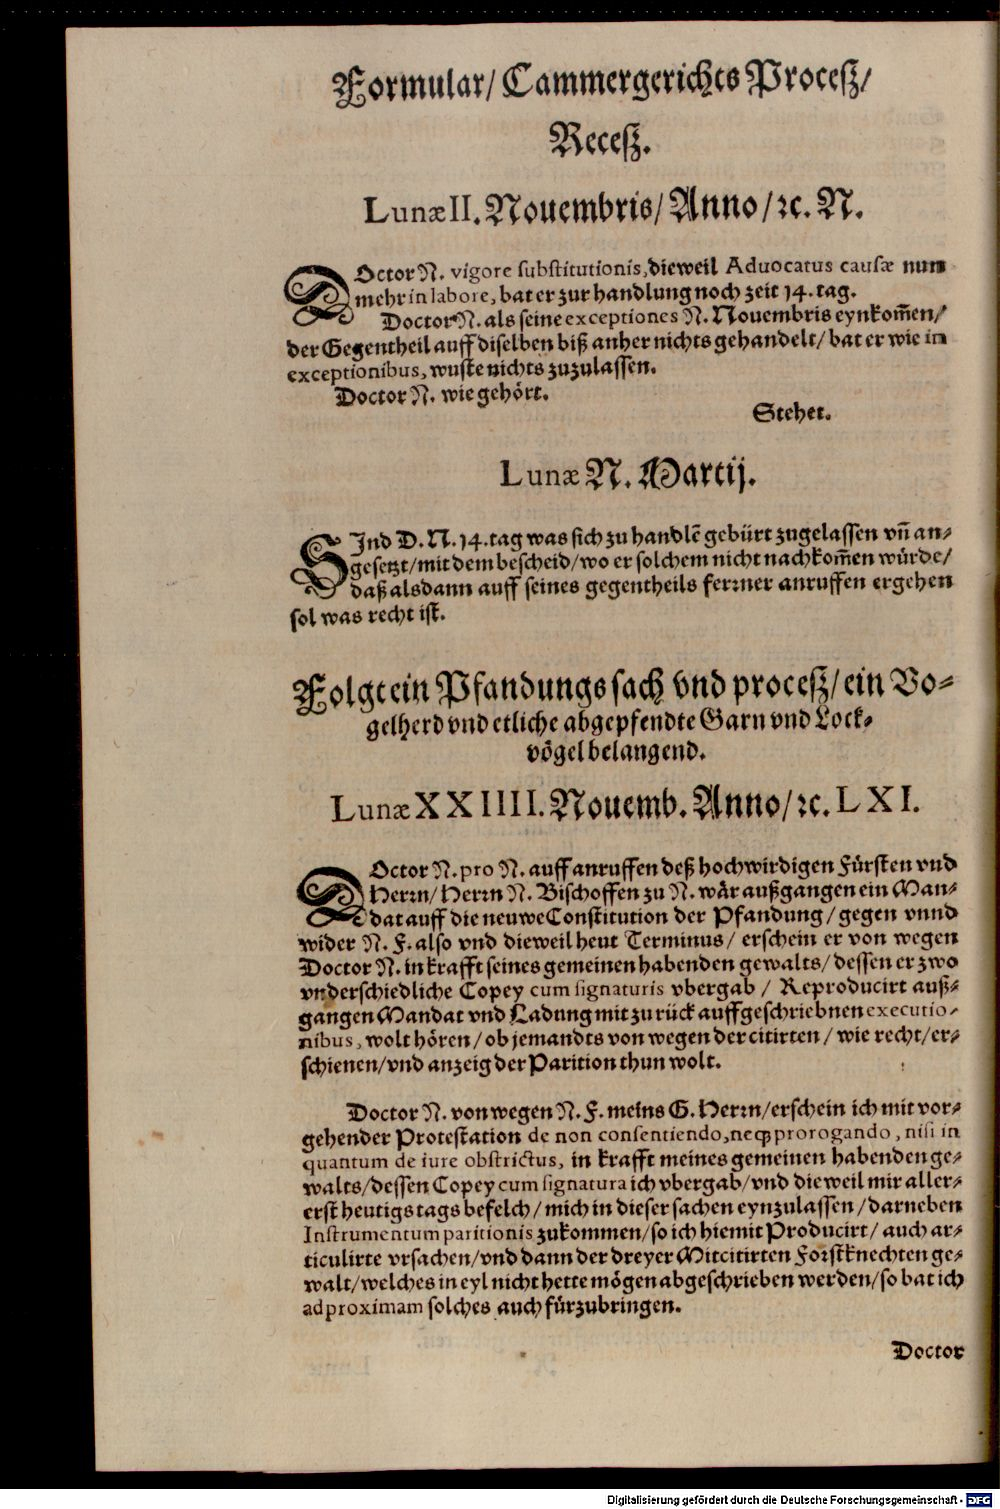 Formular/ Cammergerichts Proceſz/
Receſz.
Lunæ II. Nouembris/ Anno/ ꝛc. N.
DOctor N. vigore ſubſtitutionis, dieweil Aduocatus cauſæ nun
mehr in labore, bat er zur handlung noch zeit 14. tag.
Doctor N. als ſeine exceptiones N. Nouembris eynkom̃en/
der Gegentheil auff diſelben biß anher nichts gehandelt/ bat er wie in
exceptionibus, wuſte nichts zuzulaſſen.
Doctor N. wie gehört.
Stehet.
Lunæ N. Martij.
SInd D. N. 14. tag was ſich zu handlẽ gebürt zugelaſſen vñ an-
geſetzt/ mit dem beſcheid/ wo er ſolchem nicht nachkom̃en würde/
daß alsdann auff ſeines gegentheils ferrner anruffen ergehen
ſol was recht iſt.
Folgt ein Pfandungs ſach vnd proceſz/ ein Vo-
gelherd vnd etliche abgepfendte Garn vnd Lock-
vögel belangend.
Lunæ XXIIII. Nouemb. Anno/ ꝛc. LXI.
DOctor N. pro N. auff anruffen deß hochwirdigen Fürſten vnd
Herrn/ Herrn N. Biſchoffen zu N. wär außgangen ein Man-
dat auff die neuwe Conſtitution der Pfandung/ gegen vnnd
wider N. F. alſo vnd dieweil heut Terminus/ erſchein er von wegen
Doctor N. in krafft ſeines gemeinen habenden gewalts/ deſſen er zwo
vnderſchiedliche Copey cum ſignaturis vbergab/ Reproducirt auß-
gangen Mandat vnd Ladung mit zu rück auffgeſchriebnen executio-
nibus, wolt hören/ ob jemandts von wegen der citirten/ wie recht/ er-
ſchienen/ vnd anzeig der Parition thun wolt.
Doctor N. von wegen N. F. meins G. Herrn/ erſchein ich mit vor-
gehender Proteſtation de non conſentiendo, neq; prorogando, niſi in
quantum de iure obſtrictus, in krafft meines gemeinen habenden ge-
walts/ deſſen Copey cum ſignatura ich vbergab/ vnd dieweil mir aller-
erſt heutigs tags befelch/ mich in dieſer ſachen eynzulaſſen/ darneben
Inſtrumentum paritionis zukommen/ ſo ich hiemit Producirt/ auch ar-
ticulirte vrſachen/ vnd dann der dreyer Mitcitirten Forſtknechten ge-
walt/ welches in eyl nicht hette mögen abgeſchrieben werden/ ſo bat ich
ad proximam ſolches auch fürzubringen.
Doctor
Digitalisierung gefördert durch die Deutsche Forschungsgemeinschaft - DFG